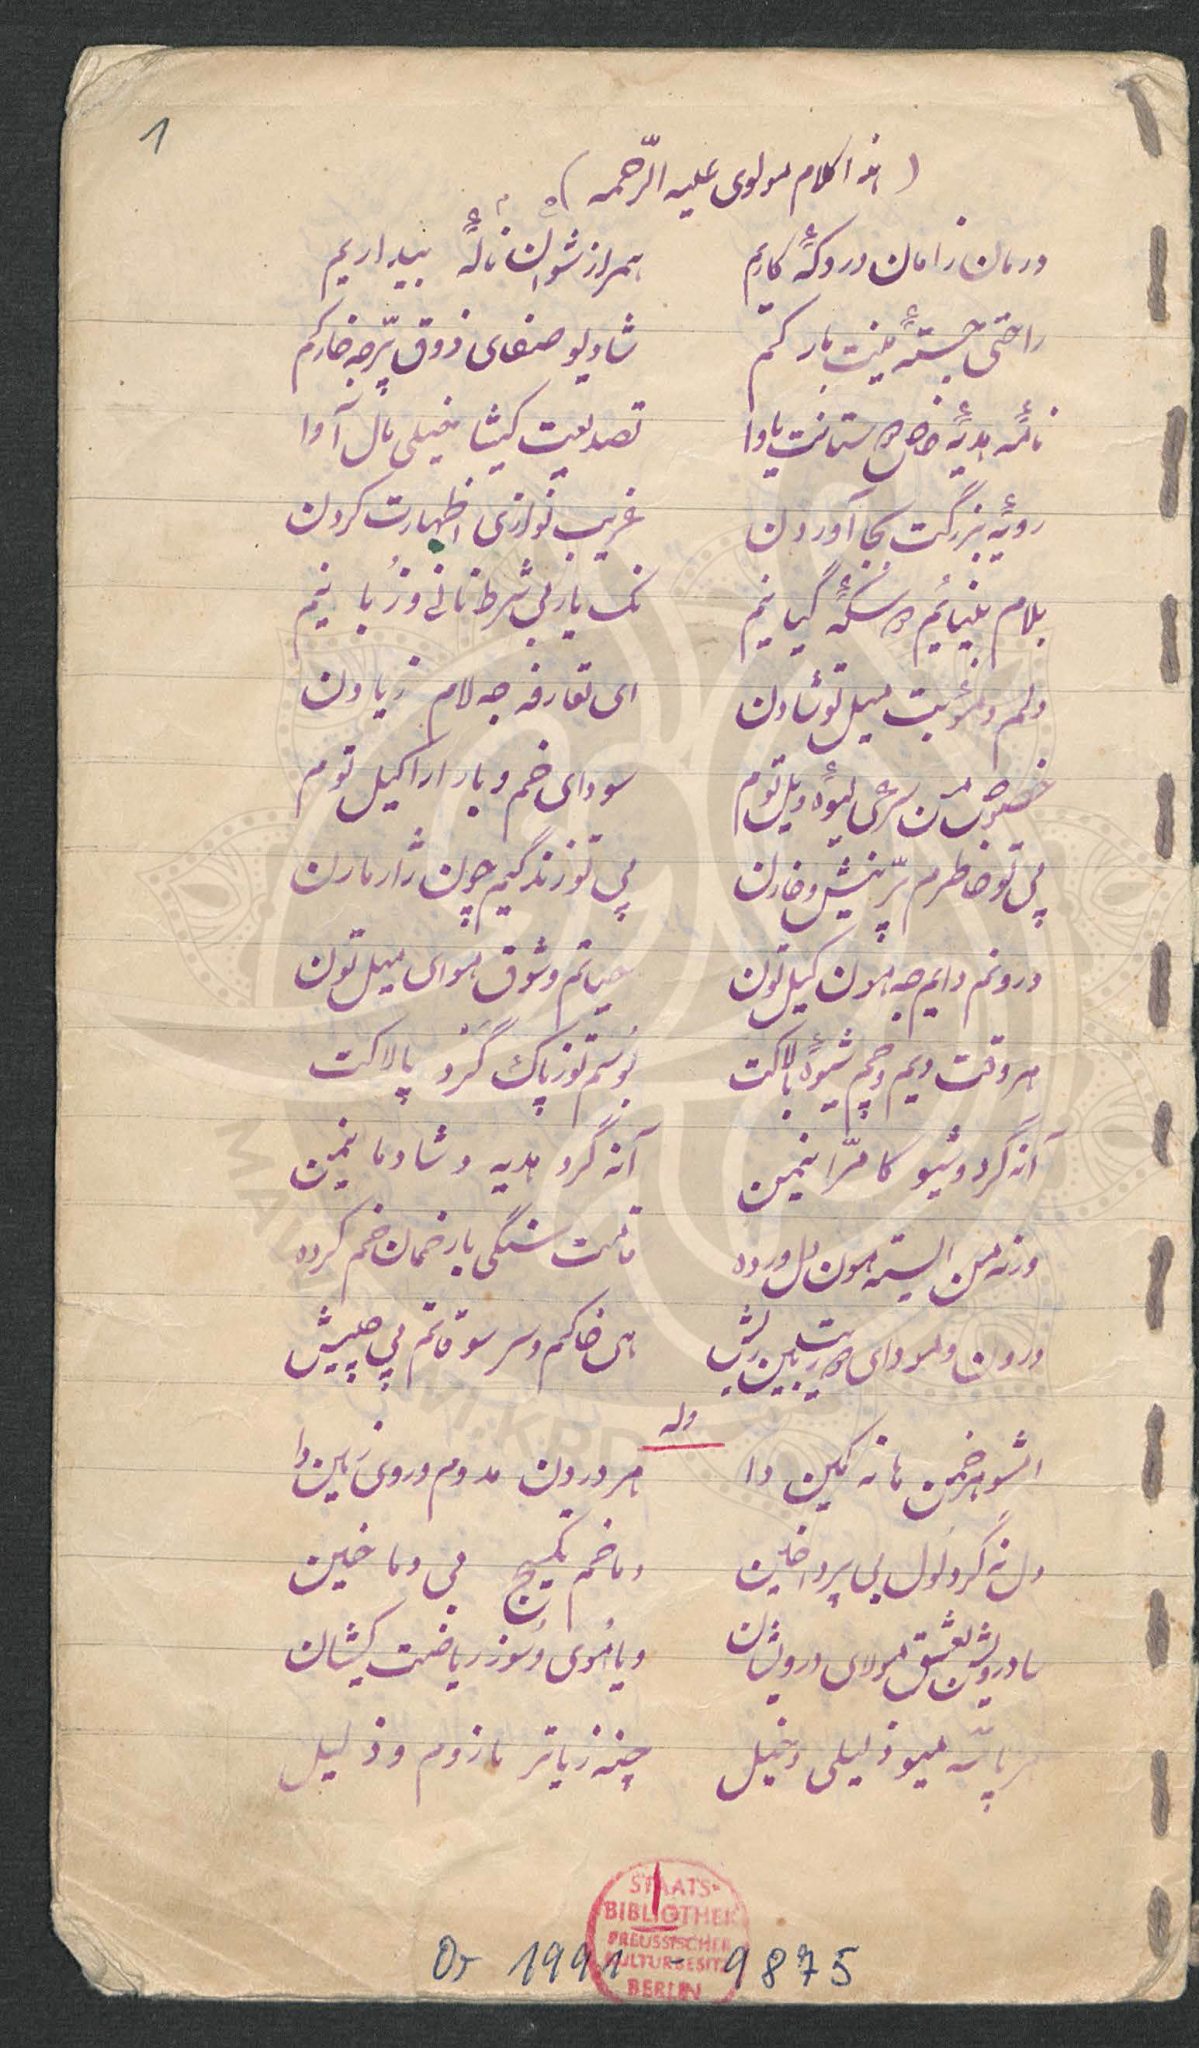 1
(هذا کلام مولوی علیه الرّحمه)
درمان زامان دردکهٔ کاریم    همراز شوان نالهٔ بیداریم
راحتی جستهٔ بار کم    شادیو صفای ذوق پرّجه خارکم
نامهٔ هدیهٔ یاوا    تصدیعت کیشا خیلی مال آوا
رویهٔ بزرگت بجا آوردن    غریب نوازی اظهارت کردن
بلام بینایم سکهٔ گیانیم    نک یاربی شرط نانی و زبانیم
دلم و میل تو شادن    ای تعارفه جه لام زیادن
خصوص من لیوهٔ ویل توم    سودای خم و بار ارا کیل توم
پی تو خاطرم پرّ نیش و خارن    پی تو زندگیم چون ژار مارن
درونم دایم جه هون کیل تون    حیاتم و شوق هوای میل تون
هر وقت دیم و چم شیوهٔ بالاکت    بوسم تو زپاک گرد پالاکت
آنه گرد و شیو کامرّانیمن    آنه گرد هدیه و شادمانیمن
ورنه من السته هون دل ورده    قامت سنگی بار خمان خم کرده
درون و سودای    هی خاکم وسر سوقاتم پی چیش
وله
امشو هر خمن مانه کمین دا    هر دردن مدوم و روی زمین دا
دل نه گرد لول بی پرواخین    دماخم بی دماخین
سا درویشن بعشق مولای درویشان    ویاهوی و سوز ریاضت کیشان
میو ذلیلی دخیل    چنه زیاتر مازوم و ذلیل
STAATS-
BIBLIOTHEK
PREUSSISCHER
KULTURBESITZ
BERLIN
Or 1991 - 9875